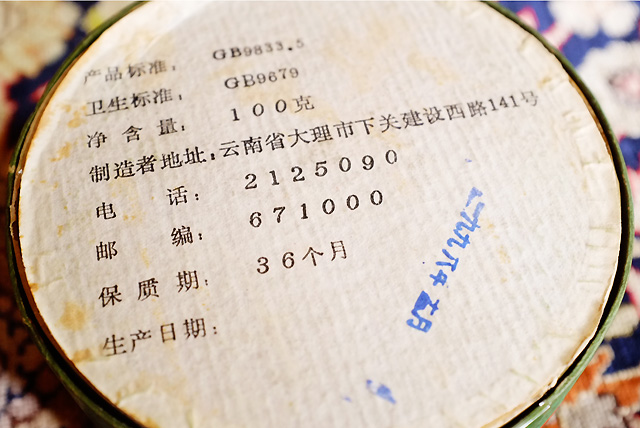 产品标准： GB9833.5
卫生标准： GB9679
净含量： 100克
制造者地址：云南省大理市下关建设西路141号
电话： 2125090
邮编： 671000
保质期： 36个月
生产日期：
一九九八年
月